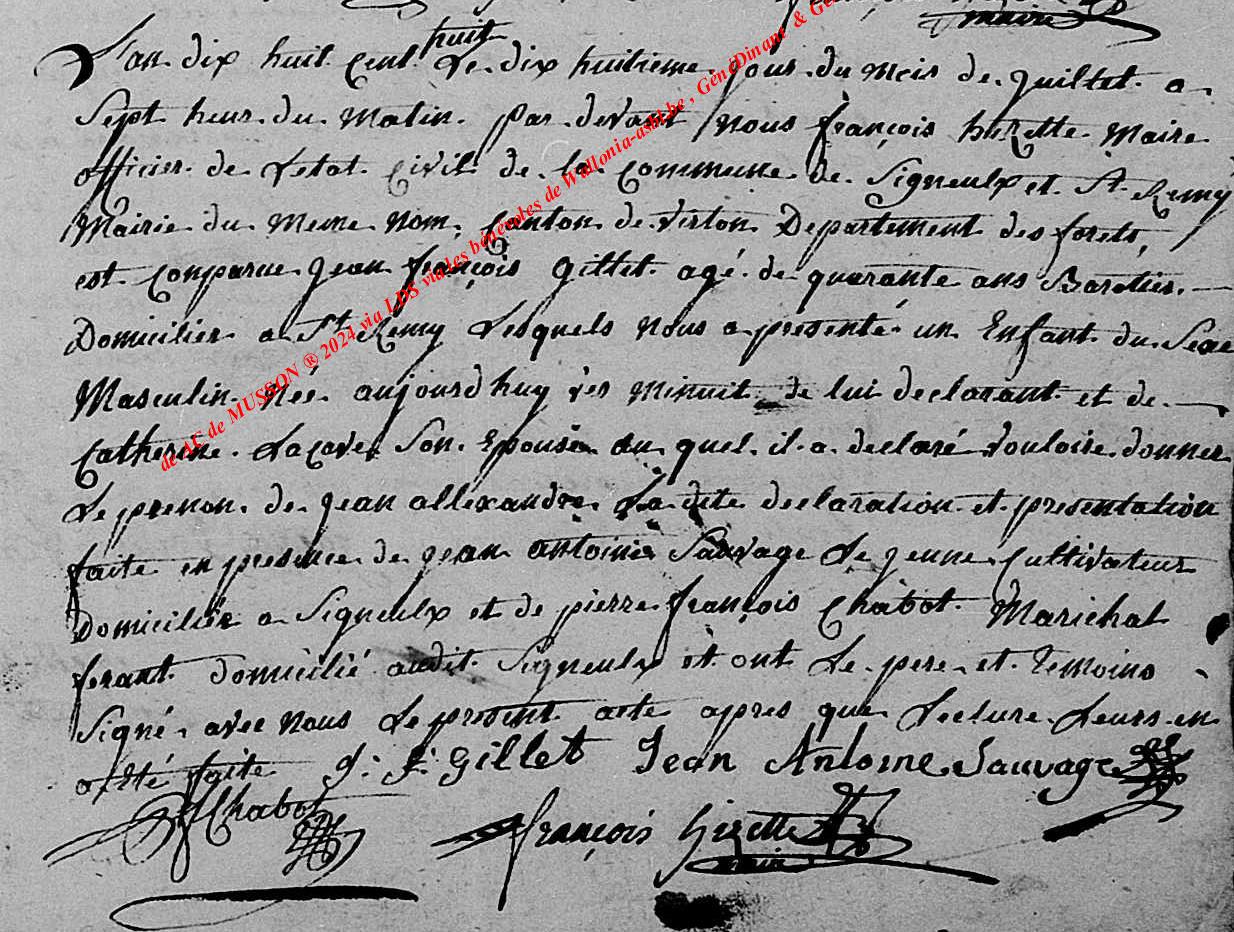 maire
L'an dix huit Cent huit Le dix huitieme jour du mois de juiltet a
Sept heur du Matin par devant Nous françois hizette Maire
officier de Letat Civil de la Commune de Signeulx et St Remy
Mairie du Meme Nom, Canton de Virton Departement des forets,
est Conparue jean françois gillet agé de quarante ans
Domicilier a St Remy Lesquels Nous a presenté un Enfant du Sexe
Masculin Née aujourd huy vers Minuit de lui declarant et de
Catherine Lacave Son Epouse au quel il a declaré Vouloire donner
Le prenon de jean allexandre La dite declaration et presentation
faite en presence de jean antoine Sauvage Le jeune Cultivateur
Domicilié a Signeulx et de pierre françois Chabot Marichal
ferant domicilié audit Signeulx et ont Le pere et temoins
Signé avec Nous Le present acte apres que Lecture Leurs en
a Eté faite J. F. Gillet Jean Antoine Sauvage
Chabot
françois hizette
maire
de AC de MUSSON ® 2024 via LDS via les bénévoles de Wallonia-asbl.be , GénéDinant & Gé